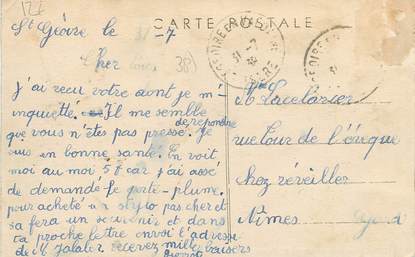 CARTE POSTALE
St Géoire le 31 - 7
Cher
(38)
J'ai recu votre dont je m'
inquietté. Il me semble
de repondre
que vous n'êtes pas pressé. Je
suis en bonne santé. En voit
moi au moi 5f car j'ai assé
de demandé le porte-plume.
pour acheté un stylo pas cher et
sa fera un souvenir et dans
ta proche lettre envoi l'adresse
de Jalatier recevez mille baisers
Lacelarier
rue Tour de l'évêque
chez réveiller
Nîmes Gard